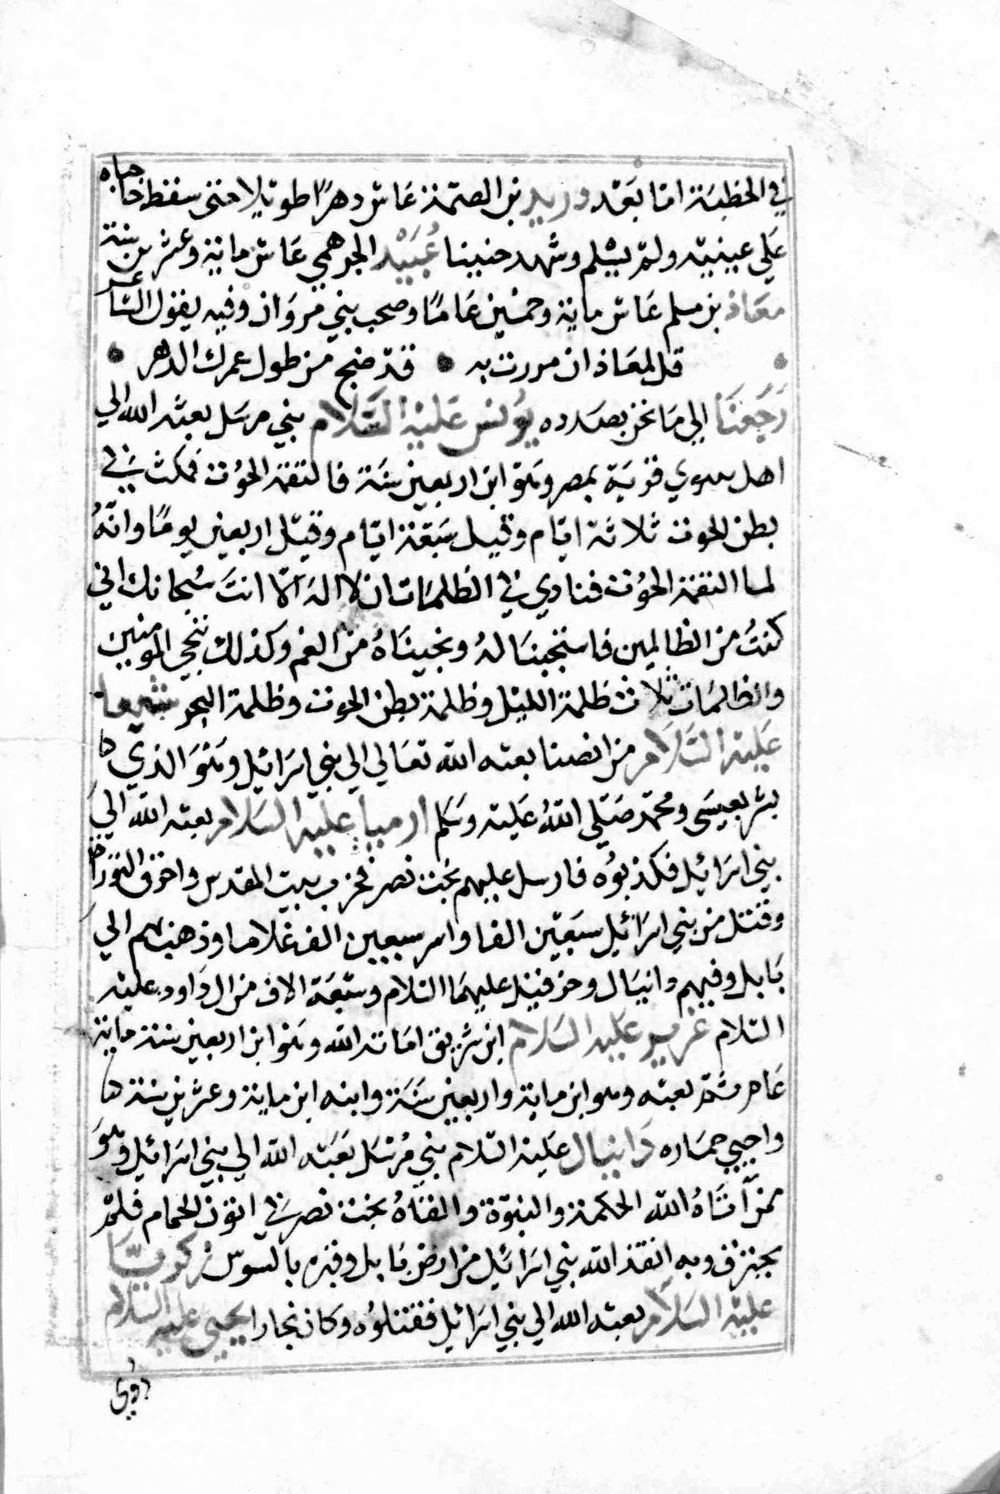 في الخطبة اما بعد دريد بن الصمة عاش دهرًا طويلا حتى سقط حاجباه
علي عينيه ولم يسلم وشهد حنينا عُبَيْد الجرهمي عاش ماية وعشرين سنة
معاذ بن مسلم عاش ماية وخمسين عامًا وصحب بني مروان وفيه يقول الشاعر
قل لمعاذ ان مررت به • قد ضج من طول عمرك الدهر •
رَجَعْنَا الي ما نحن بصدده يونس عليه السلام نبي مرسل بعثه الله الي
اهل نينوي قرية بمصر وهو ابن اربعين سنة فالتقمه الحوت فمكث في
بطن الحوت ثلاثة ايام وقيل سبعة ايام وقيل اربعين يومًا وانهُ
لما التقمه الحوت فنادي في الظلمات ان لا اله الا انت سُبحانك اني
كنتُ من الظالمين فاستجبنا لهُ ونجيناهُ من الغم وكذلك ننجي المومنين
والظلمات ثلاث ظلمة الليل وظلمة بطن الحوت وظلمة البحر شعيا
عليه السلام بن امصيا بعثه الله تعالي الي بني اسرائيل وهو الذي
بشر بعيسي ومحمد صَلّي اللهُ عليه وسلم ارميا عليه السلام بعثه الله الي
بني اسرائيل فكذبوُه فارسل عليهم بخت نصر فخرب بيت المقدس واحرق التوراة
وقتل من بني اسرائيل سبعين الفا واسر سبعين الف غلاما وذهب بهم الي
بابل وفيهم دانيال وحزقيل عليهما السلام وسبعة الاف من ال داود عليه
السلام عزير عليه السلام ابن شريق اماته الله وهو ابن اربعين سنة ماية
عام ثم بعثه وهو ابن ماية واربعين سَنَة وابنه ابن ماية وعشرين سنة
واحيي حماره دَانيال عليه السلام نبي مُرسَل بَعَثه الله الي بني اسرائيل وهو
ممن آتاهُ الله الحكمة والنبوّة والقاهُ بخت نصر في اتون الحمام فلم
يحترق وبه انقذ الله بني اسرائيل من ارض بابل وقبره بالسوس زكريّا
عليه السلام بعثه الله الي بني اسرائيل فقتلوُه وكان نجارا يحيي عليه السلام